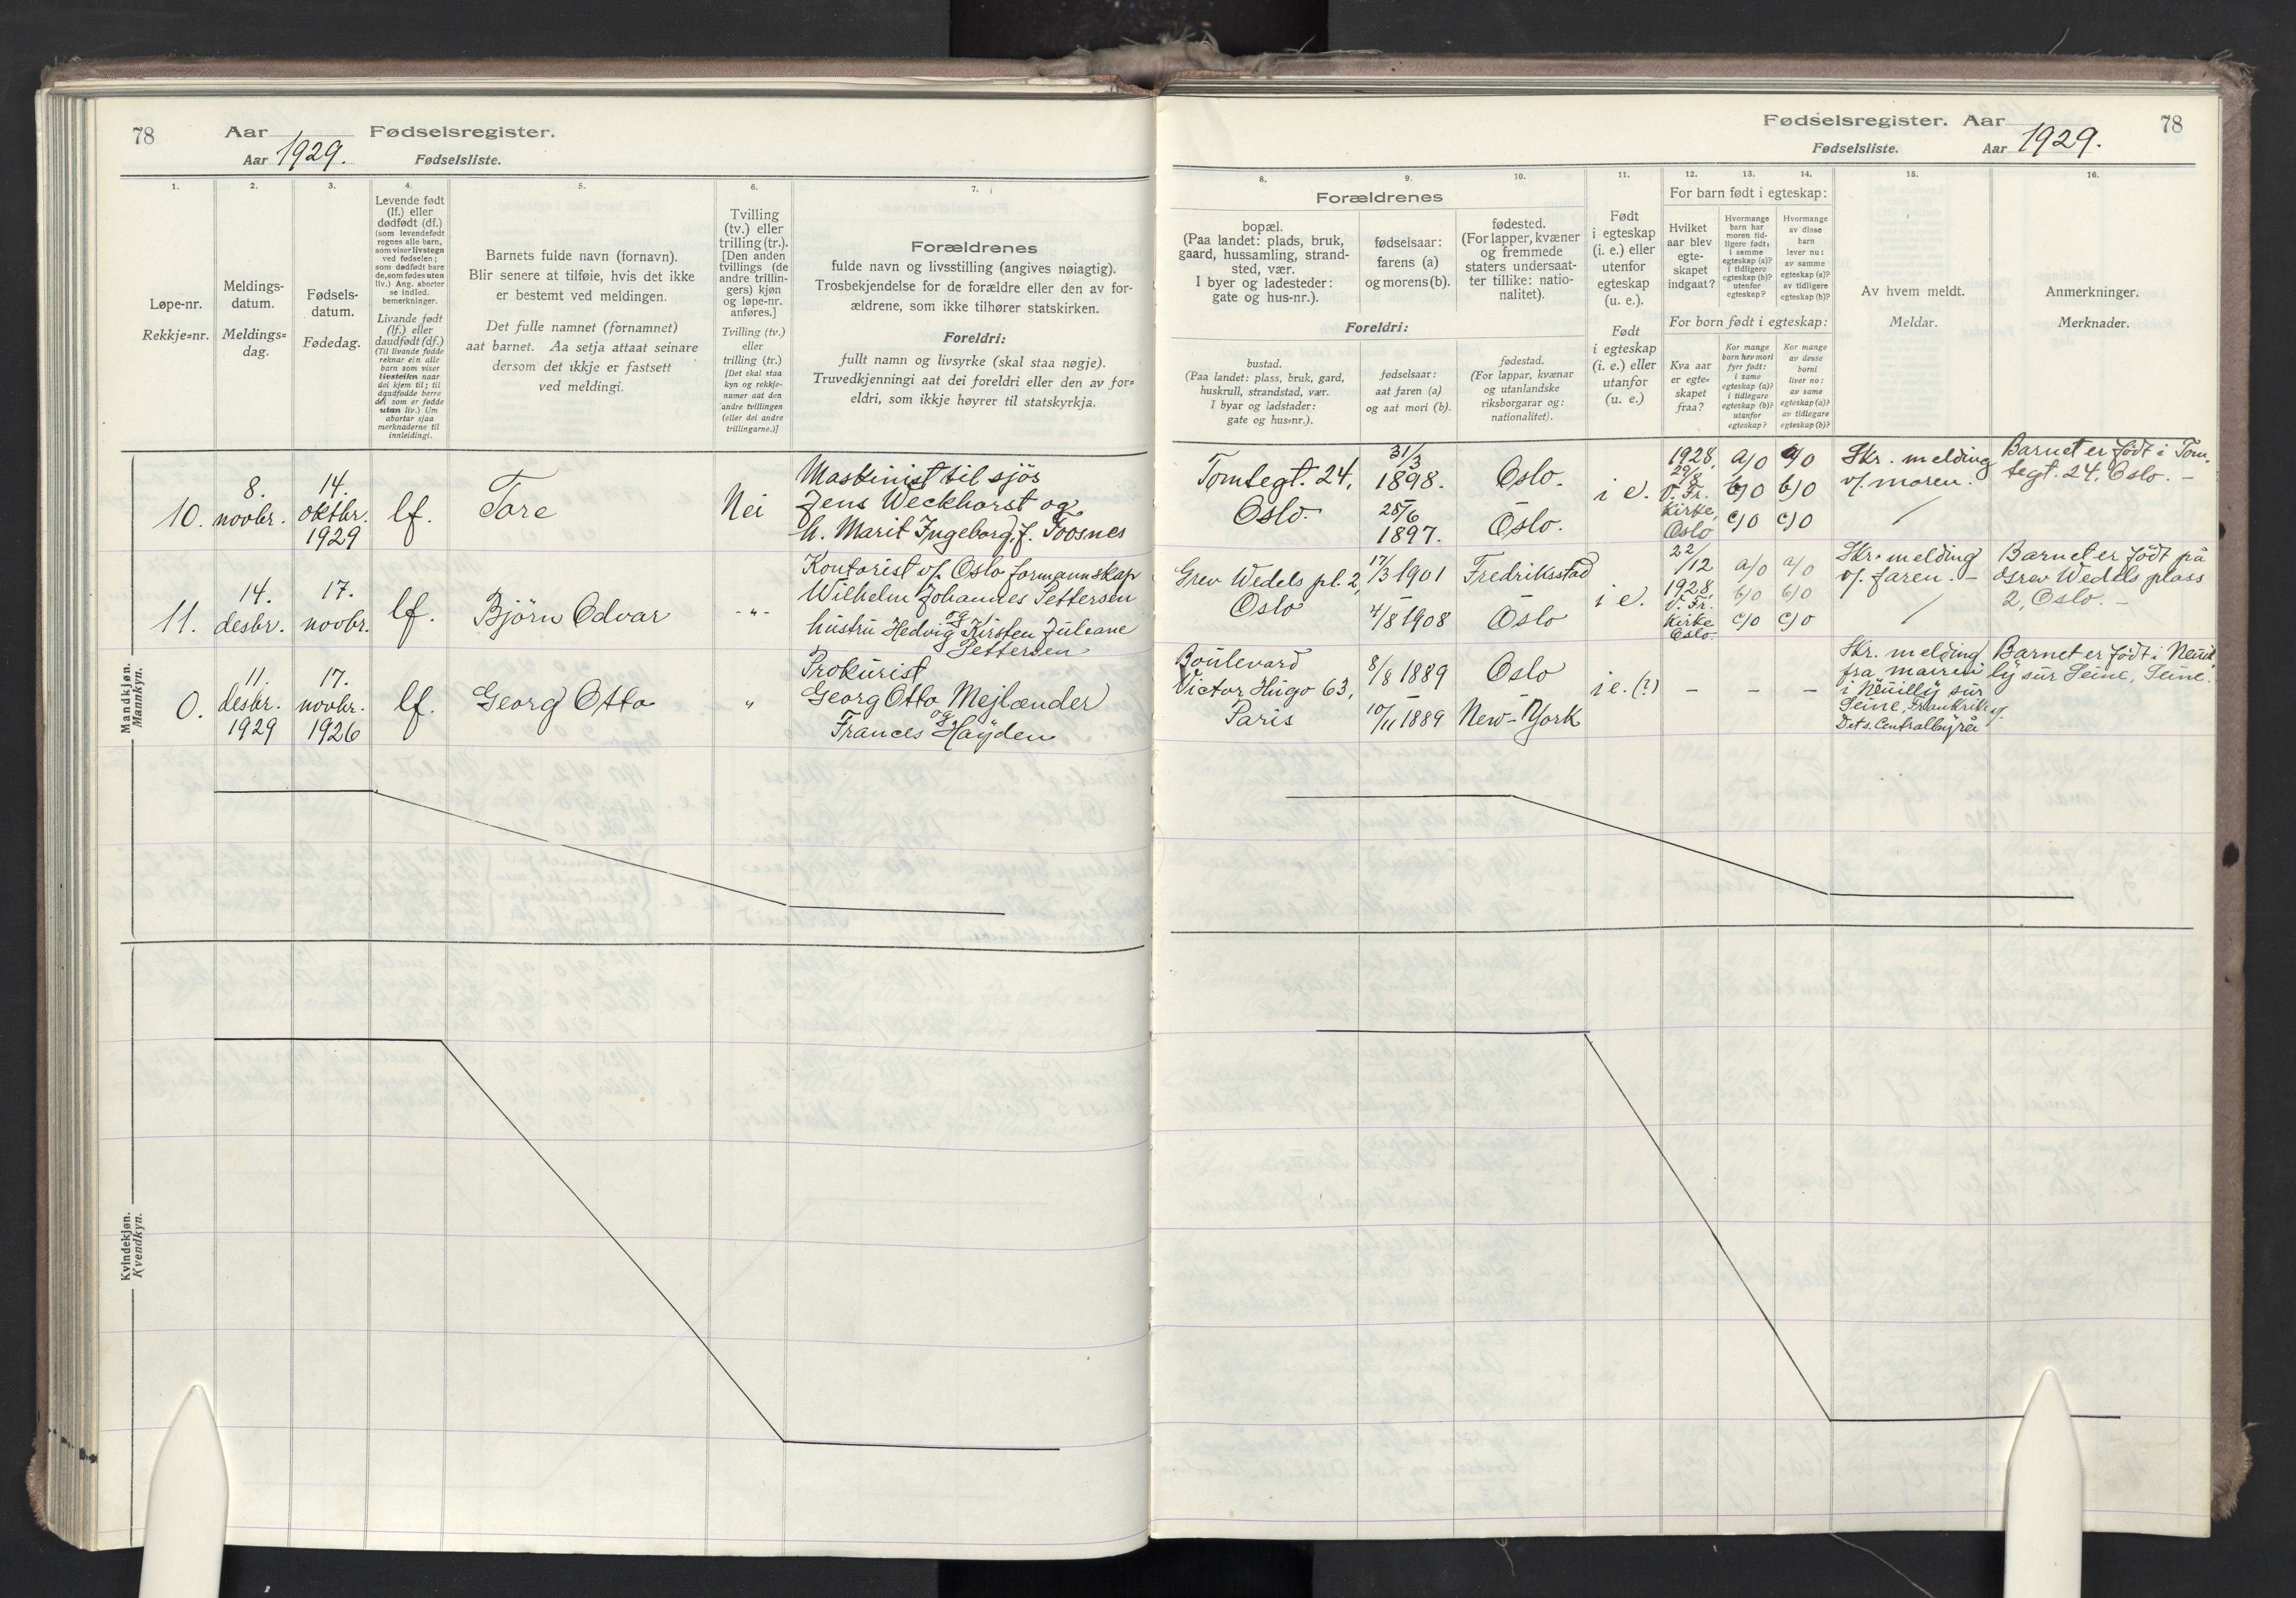 78
Aar
Fødselsregister.
Aar 1929.
Fødselsliste.
1.
2.
3.
4.
5.
6.
7.
Løpe-nr.
Rekkje=nr.
Meldings-
datum.
Meldings=
dag.
Fødsels-
datum.
Fødedag.
Levende født
(lf.) eller
dødfødt (df.)
(som levendefødt
regnes alle barn,
som viser livstegn
ved fødselen;
som dødfødt bare
de, som fødes uten
liv.) Ang. aborter
se indled.
bemerkninger.
Livande født
(lf.) eller
daudfødt (df.)
(Til livande fødde
reknar ein alle
barn som viser
livsteikn naar
dei kjem til; til
daudfødde berre
dei som er fødde
utan liv.) Um
abortar sjaa
merknaderne til
innleidingi.
Barnets fulde navn (fornavn).
Blir senere at tilføie, hvis det ikke
er bestemt ved meldingen.
Det fulle namnet (fornamnet)
aat barnet. Aa setja attaat seinare
dersom det ikkje er fastsett
ved meldingi.
Tvilling
(tv.) eller
trilling (tr.).
[Den anden
tvillings (de
andre trillin-
gers) kjøn
og løpe-nr.
anføres.]
Tvilling (tv.)
eller
trilling (tr.)
[Det skal staa
kyn og rekkje-
numer aat den
andre tvillingen
(eller dei andre
trillingarne.)]
Forældrenes
fulde navn og livsstilling (angives nøiagtig).
Trosbekjendelse for de forældre eller den av for-
ældrene, som ikke tilhører statskirken.
Foreldri:
fullt namn og livsyrke (skal staa nøgje).
Truvedkjenningi aat dei foreldri eller den av for=
eldri, som ikkje høyrer til statskyrkja.
Mandkjøn.
Mannkyn.
10.
8.
novbr.
14.
oktbr.
1929
lf.
Tore
Nei
Maskinist til sjös
Jens Weckhorst og
h. Marit Ingeborg, f. Toosnes
11.
14.
desbr.
17.
novbr.
lf.
Björn Odvar
-"-
Kontorist v/ Oslo formannskap
Wilhelm Johannes Pettersen
og
hustru Hedvig Kirsten Juleane
Pettersen
0.
11.
desbr.
1929
17.
novbr.
1926
lf.
Georg Otto
"
Prokurist
Georg Otto Mejlænder
og
Frances Hayden
Kvindekjøn.
Kvendkyn.
Fødselsregister. Aar
78
Fødselsliste.
Aar 1929.
8.
9.
10.
11.
12.
13.
14.
15.
16.
Forældrenes
bopæl.
(Paa landet: plads, bruk,
gaard, hussamling, strand-
sted, vær.
I byer og ladesteder:
gate og hus-nr.).
fødselsaar:
farens (a)
og morens (b).
fødested.
(For lapper, kvæner
og fremmede
staters undersaat-
ter tillike: natio-
nalitet).
Foreldri:
bustad.
(Paa landet: plass, bruk, gard,
huskrull, strandstad, vær.
I byar og ladstader:
gate og hus=nr.).
fødselsaar:
aat faren (a)
og aat mori (b).
fødestad.
(For lappar, kvænar
og utanlandske
riksborgarar og:
nationalitet).
Født
i egteskap
(i. e.) eller
utenfor
egteskap
(u. e.).
Født
i egteskap
(i. e.) eller
utanfor
(u. e.)
For barn født i egteskap:
Hvilket
aar blev
egte-
skapet
indgaat?
Hvormange
barn har
moren tid-
ligere født:
i samme
egteskap (a)?
i tidligere
egteskap (b)?
utenfor
egteskap?
Hvormange
av disse
barn
lever nu:
av samme
egteskap (a)?
av tidligere
egteskap (b)?
For born født i egteskap:
Kva aar
er egte=
skapet
fraa?
Kor mange
born hev mori
fyrr født:
i same
egteskap (a)?
i tidlegare
egteskap (b)?
utanfor
egteskap?
Kor mange
av desse
borni
liver no:
av same
egteskap (a)?
av tidlegare
egteskap (b)?
Av hvem meldt.
Meldar.
Anmerkninger.
Merknader.
Tomtegt. 24,
Oslo.
31/3
1898.
25/6
1897.
Oslo.
Oslo.
i e.
1928,
29/8
V. Fr.
kirke,
Oslo
a/0
b/0
c/0
a/0
b/0
c/0
Skr. melding
v/ moren.
Barnet er født i Tom-
tegt. 24, Oslo. -
Grev Wedels pl. 2,
Oslo
17/3 1901
4/8 1908
Fredriksstad
Oslo
i e.
22/12
1928,
V. Fr.
kirke
Oslo.
a/0
b/0
c/0
a/0
b/0
c/0
Skr. melding
v/ faren. -
Barnet er født på
Grev Wedels plass
2, Oslo. -
Boulevard
Victor Hugo 63,
Paris
8/8 1889
10/11 1889
Oslo
New-York
i e. (?)
-
-
-
Skr. melding
fra mairen
i Neuilly sur
Seine, Frankrike
Det s. Centralbyrå
Barnet er født i Neuil-
ly sur Seine, Seine.